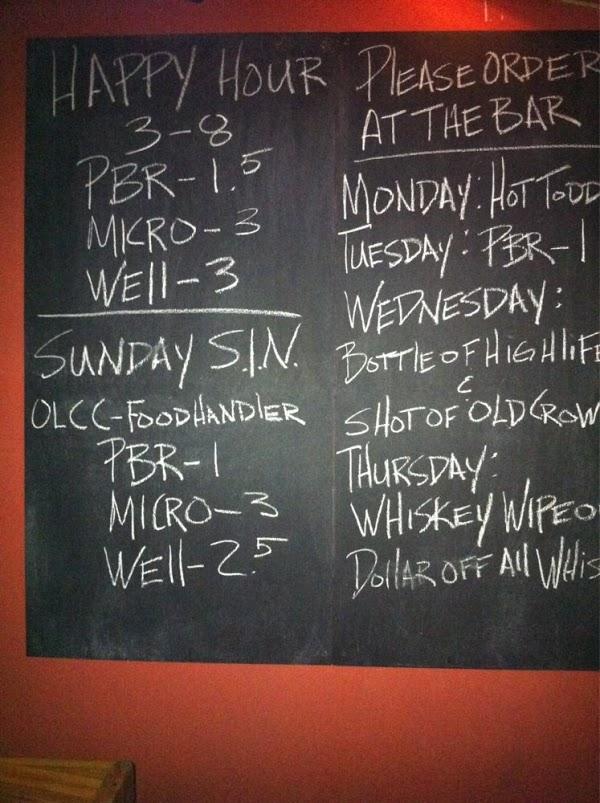 HAPPY HOUR
3-8
PBR-1.5
MICRO-3
WEll-3
SUNDAY S.I.N.
OLCC-FOODHANDlER
PBR-1
MICRO-3
WEll-2.5
PLEASE ORDER
AT THE BAR
MONDAY: HOT TODD
TUESDAY: PBR-1
WEDNESDAY:
BOTTlE OF HIGHlIFE
&
SHOT OF OLD CROW
THURSDAY:
WHISKEY WIPEO
DOllAR OFF All WHIS